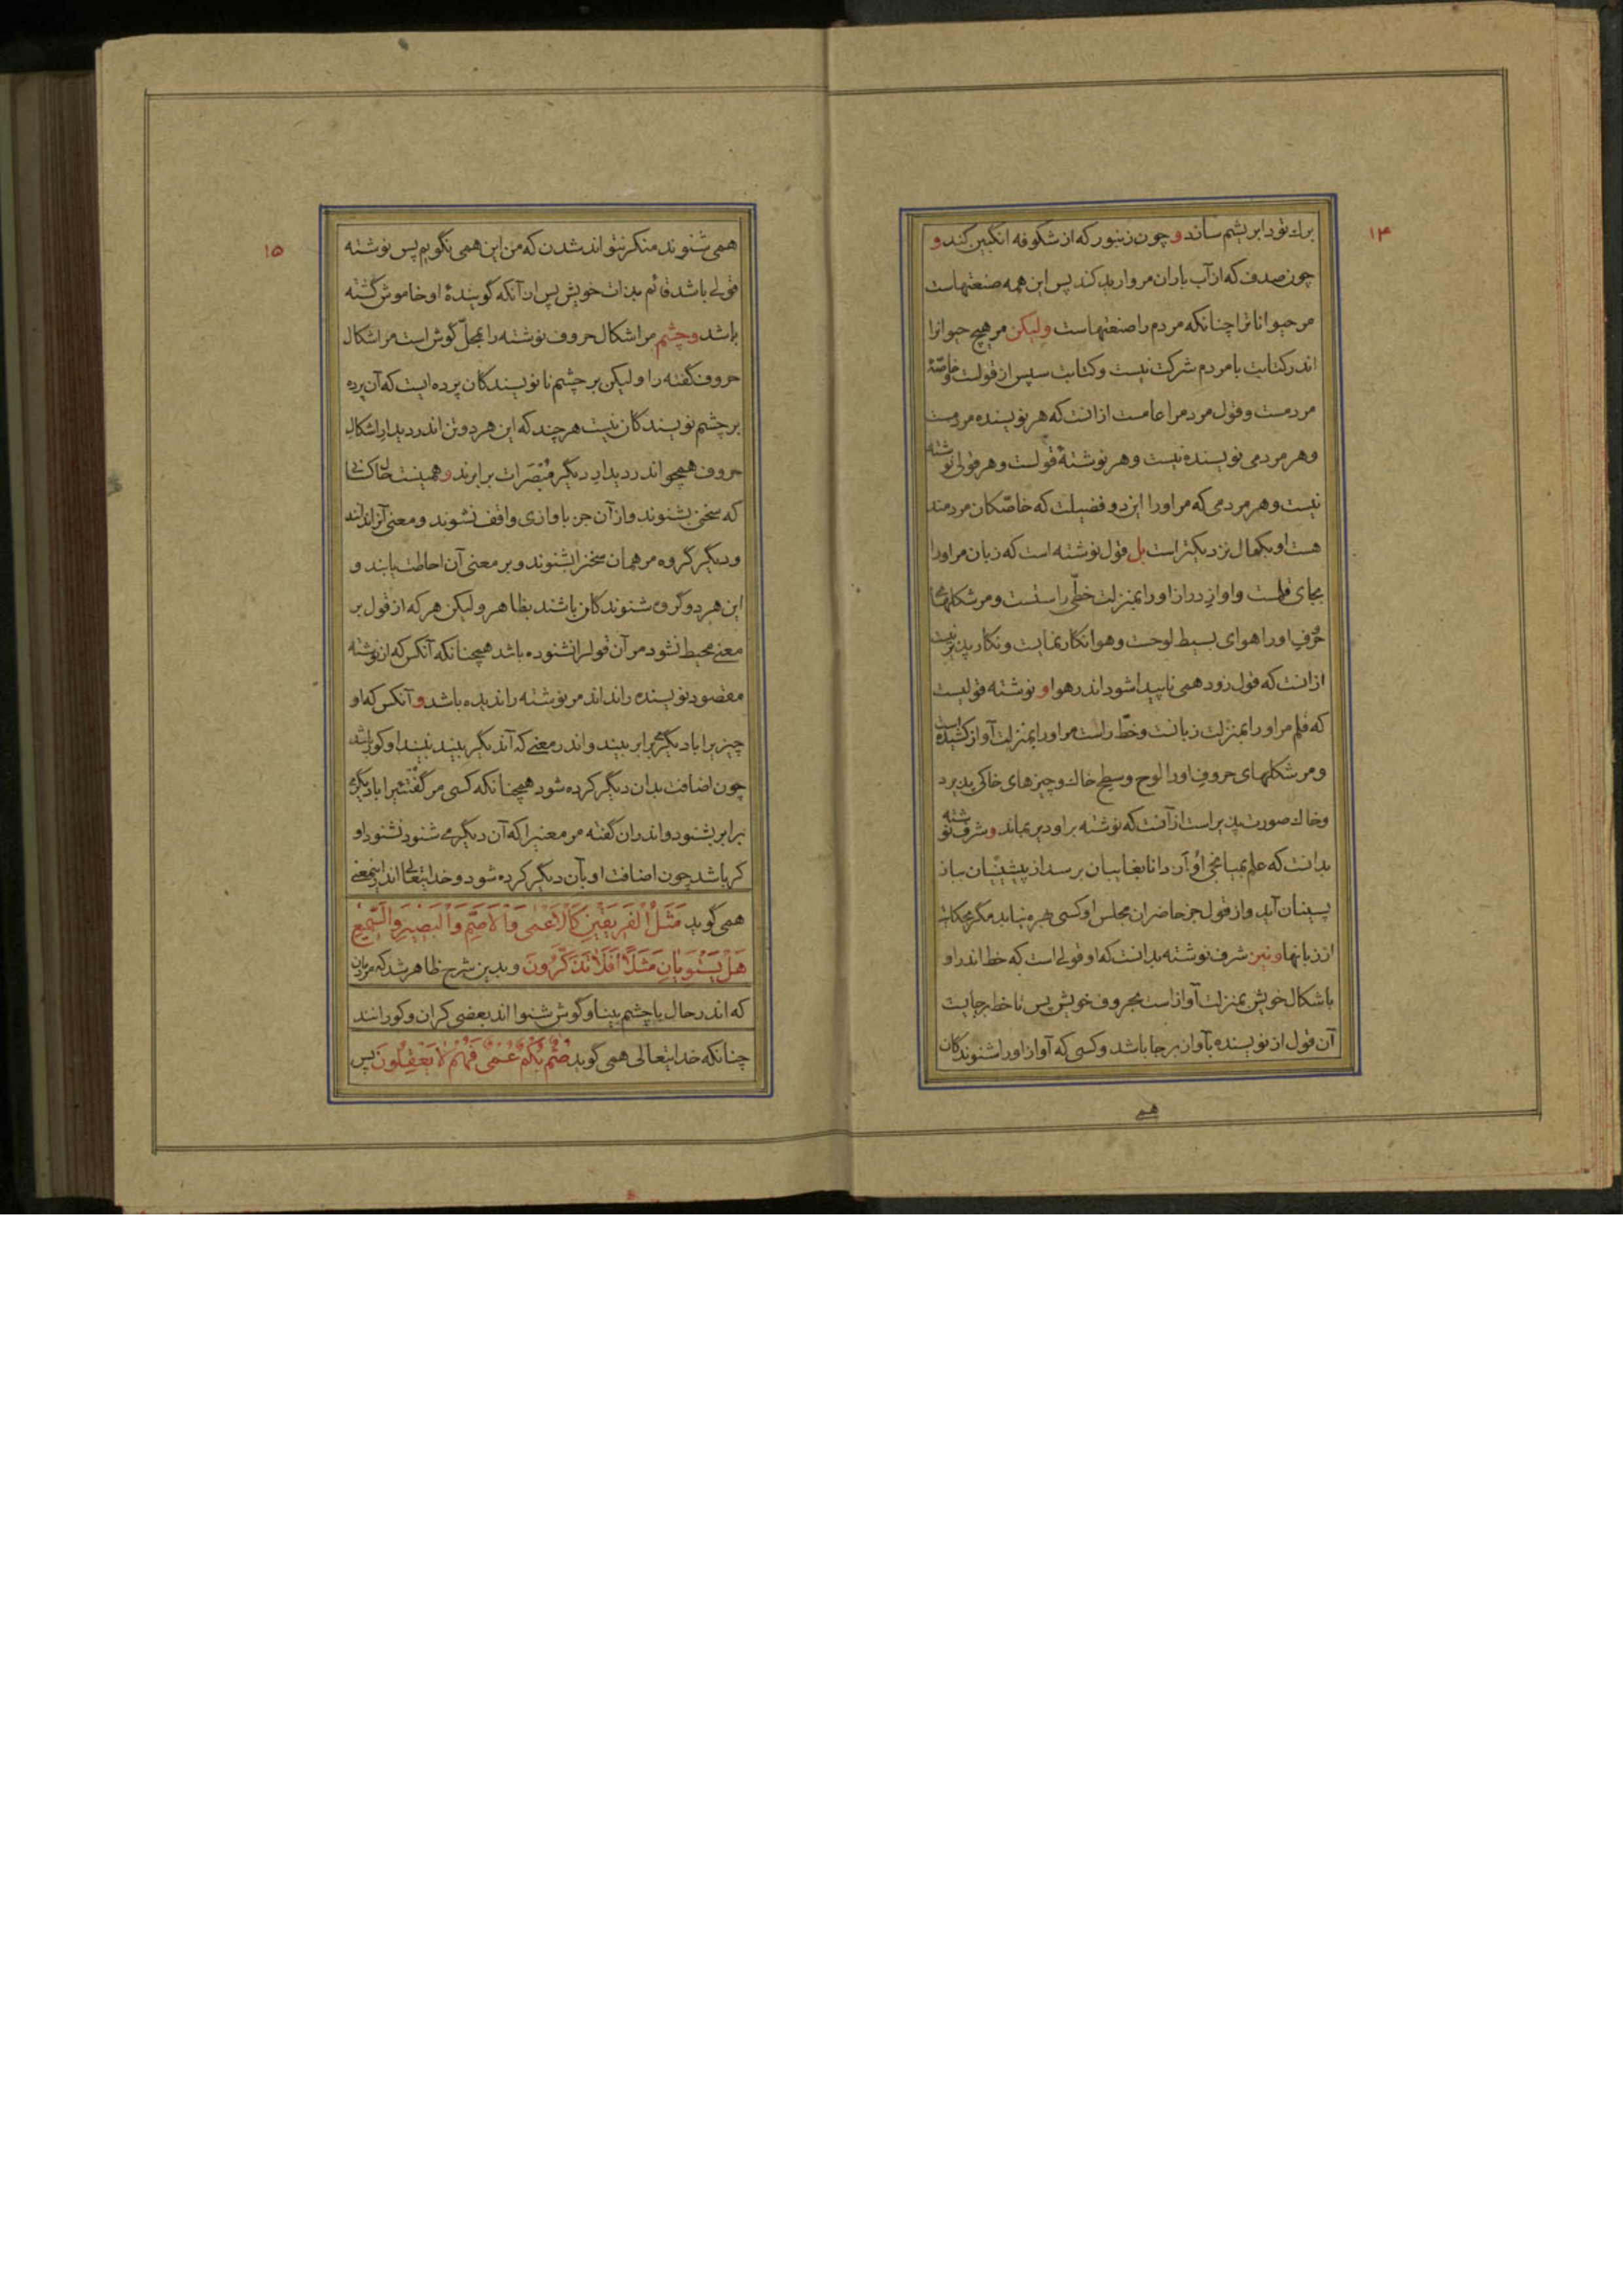 ۱۴
برك تود ابریشم سازد و چون زنبور که از شکوفه انگبین کند و
چون صدف که از آب باران مروارید کند پس این همه صنعتهاست
مر حیوانانرا چنانکه مردم را صنعتهاست ولیکن مر هیچ حیوانرا
اندر کتابت با مردم شرکت نیست و کتابت سپس از قولست و خاصّهٔ
مردمست و قول مردم را عامست از انست که هر نویسنده مردمست
و هر مردمی نویسنده نیست و هر نوشتهٔ قولست و هر قولی نوشته
نیست و هر مردمی که مر اورا این دو فضیلت که خاصّکان مردمند
هست او بکمال نزدیکتر است بل قول نوشته است که زبان مر اورا
بجای قلمست و اواز دراز اورا بمنزلت خطّی راستست و مر شکلهای
حرف اورا هوای بسیط لوحست و هوا نکار نمایست و نکار پذیر نیست
از انست که قول زود همی ناپیدا شود اندر هوا و نوشته قولیست
که قلم مر اورا بمنزلت زبانست و خطّ راست مر اورا بمنزلت آواز کشیده است
و مر شکلهای حروف اورا لوح و سطح خاك و چیزهای خاکی پذیرد
و خاك صورت پذیر است از آنست که نوشته بر او دیر بماند و شرف نوشته
بدانست که علم بمیانجی او از دانا بغایبان برسد از پیشینیان بباز
پسینان آید و از قول جز حاضران مجلس او کسی بهره نیابد مگر بحکایت
از زبانها و نیز شرف نوشته بدانست که او قولی است که خط اندر او
باشکال خویش بمنزلت آواز است بحروف خویش پس تا خط برجایست
آن قول از نویسنده بآواز برجا باشد و کسی که آواز اورا شنوندکان
هم
۱۵
همی شنوند منکر نتواند شدن که من این همی نگویم پس نوشته
قولی باشد قائم بذات خویش پس از آنکه گویندهٔ او خاموش گشته
باشد و چشم مر اشکال حروف نوشته را بمحلّ گوش است مر اشکال
حروف گفته را ولیکن بر چشم نانویسندکان پرده ایست که آن پرده
بر چشم نویسندکان نیست هر چند که این هر دو تن اندر دیدار اشکال
حروف همچو اندر دیدار دیگر مُبْصَرات برابرند و همینست حال کسانی
که سخن بشنوند و از آن جز باوازی واقف نشوند و معنی آنرا ندانند
و دیگر گروه مر همان سخنرا بشنوند و بر معنی آن احاطت یابند و
این هر دو گروه شنوندکان باشند بظاهر ولیکن هر که از قول بر
معنی محیط نشود مر آن قولرا نشنوده باشد همچنانکه آنکس که از نوشته
مقصود نویسنده را نداند مر نوشته را ندیده باشد و آنکس که او
چیزیرا با دیگری برابر بیند و اندر معنی که آن دیگر بیند نبیند او کور باشد
چون اضافت بدان دیگر کرده شود همچنانکه کسی مر گفتهٔیرا با دیگری
برابر بشنود و اندران گفته مر معنیرا که آن دیگر می شنود نشنود او
کر باشد چون اضافت او بآن دیگر کرده شود و خدایتعالی اندر اینمعنی
همی گوید مَثَلُ الْفَرِیقَیْنِ کَالْاَعْمٰی وَالْاَصَمِّ وَالْبَصِیرِ وَالسَّمِیعِ
هَلْ یَسْتَوِیَانِ مَثَلاً اَفَلَا تَذَکَّرُونَ و بدین شرح ظاهر شد که مردمان
که اندر حال با چشم بینا و گوش شنوا اند بعضی کران و کورانند
چنانکه خدایتعالی همی گوید صُمٌّ بُکْمٌ عُمْیٌ فَهُمْ لَا یَعْقِلُونَ پس